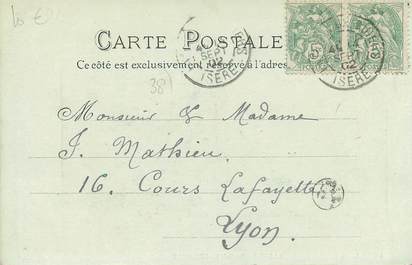 10 €
CARTE POSTALE
Ce côté est exclusivement réservé à l'adresse
5
SEPT
02
ISÈRE
SEPT
02
ISÈRE
38
Monsieur & Madame
J. Mathieu
16. Cours Lafayette
Lyon.